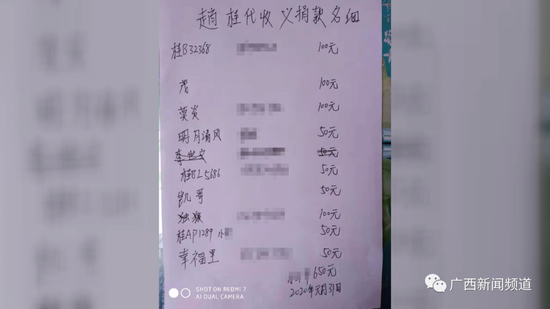 赵 桂代收义捐款名细
桂B32368 100元
茂 100元
英炎 100元
明月清风 50元
李世文 50元
桂BL5686 50元
凯哥 50元
独狼 100元
桂AP1289 50元
幸福里 50元
650元
2020年元月31日
SHOT ON REDMI 7
AI DUAL CAMERA
广西新闻频道